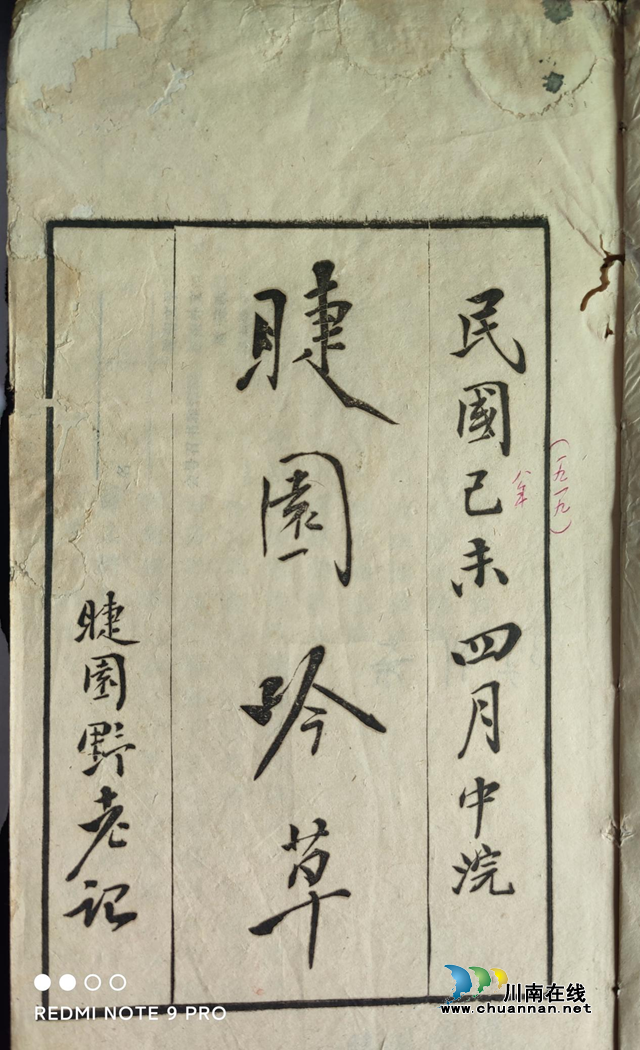 民國己未四月中浣
(一九一九)
八年
睫園吟草
睫園野老記
REDMI NOTE 9 PRO
川南在线
www.chuannan.net